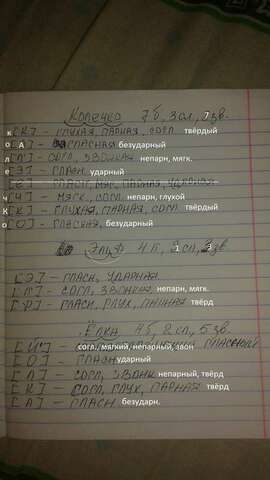 Колечко 7 б, 3 сл, 7 зв.
к [К] - глухая, парная, согл. твёрдый
о [А] - гласная безударный
л [Л] - согл, звонкая непарн, мягк.
е [Э] - гласн ударный
ч [Ч] - мягк, согл. непарн, глухой
К [К] - глухая, парная, согл твёрдый
о [О] - гласная, безударный
Эльф 4 б, 1 сл, 3 зв
[Э] - гласн, ударная
[Л] - согл, звонкая непарн, мягк
[Ф] - гласн, глух, парная твёрд
Ёлка 4 б, 2 сл, 5 зв.
[Й'] - согл., мягкий, непарный, звон
[О] - гласн ударный
[Л] - согл, звонк непарный, твёрд
[К] - согл, глух, парная твёрд
[А] - гласн безударн.